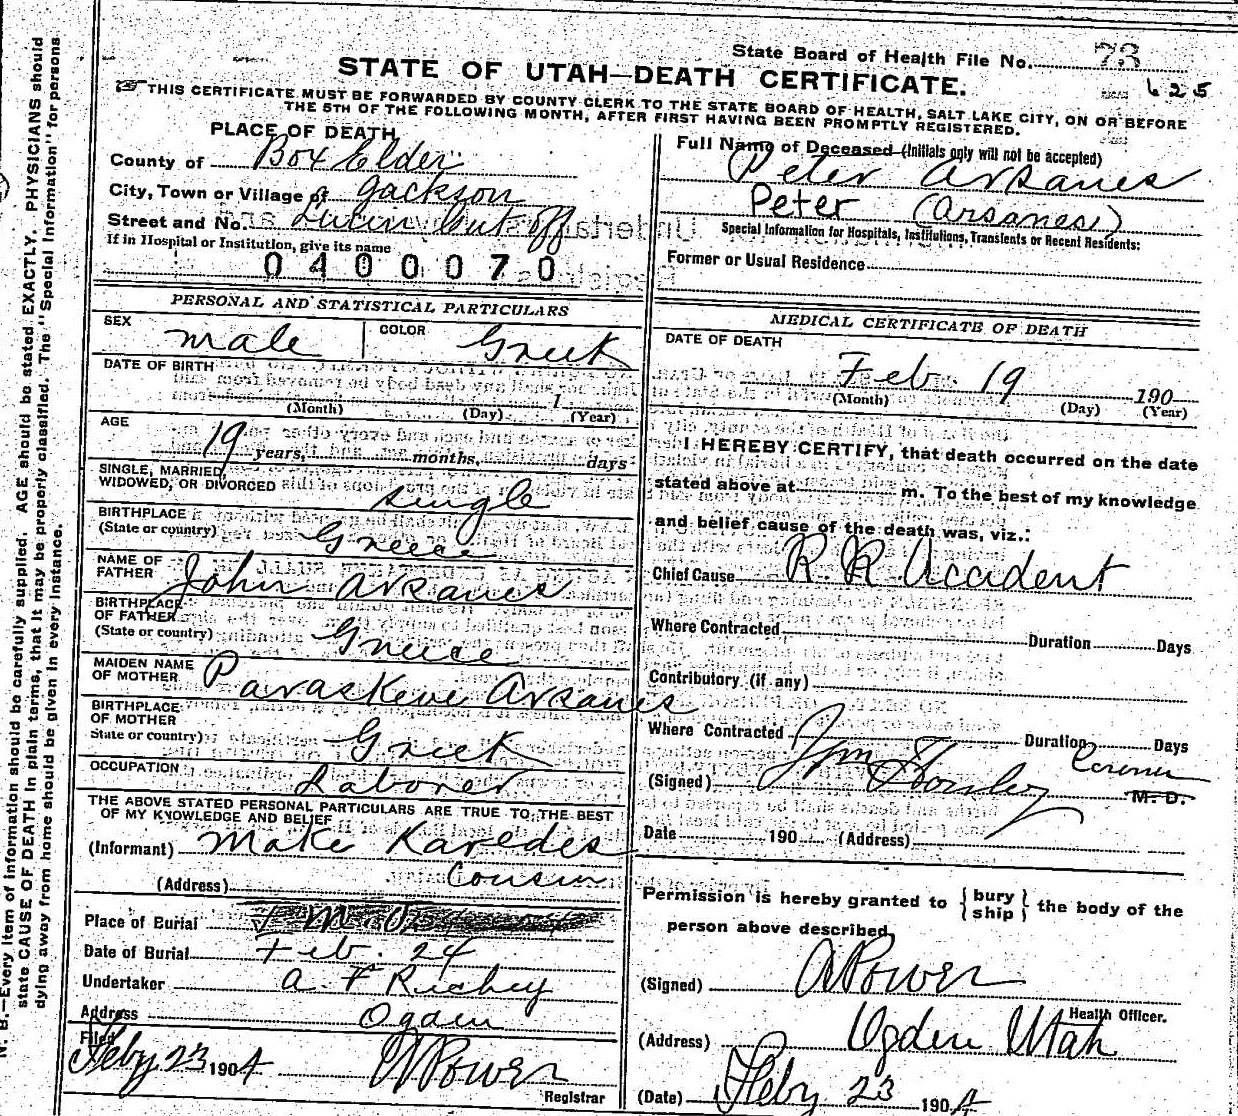 State Board of Health File No. 73
625
STATE OF UTAH—DEATH CERTIFICATE.
THIS CERTIFICATE MUST BE FORWARDED BY COUNTY CLERK TO THE STATE BOARD OF HEALTH, SALT LAKE CITY, ON OR BEFORE
THE 5TH OF THE FOLLOWING MONTH, AFTER FIRST HAVING BEEN PROMPTLY REGISTERED.
PLACE OF DEATH
County of Box Elder
City, Town or Village of Jackson
Street and No. Lucin Cut off
If in Hospital or Institution, give its name
0400070
PERSONAL AND STATISTICAL PARTICULARS
SEX male COLOR Greek
DATE OF BIRTH
1
(Month) (Day) (Year)
AGE
19 years, months, days
SINGLE, MARRIED,
WIDOWED, OR DIVORCED single
BIRTHPLACE
(State or country) Greece
NAME OF
FATHER John Arsanes
BIRTHPLACE
OF FATHER
(State or country) Greece
MAIDEN NAME
OF MOTHER Paraskeve Arsanes
BIRTHPLACE
OF MOTHER
State or country) Greek
OCCUPATION Laborer
THE ABOVE STATED PERSONAL PARTICULARS ARE TRUE TO THE BEST
OF MY KNOWLEDGE AND BELIEF
(Informant) Make Karedes
(Address) Cousin
Place of Burial
Date of Burial Feb. 24
Undertaker A F Richey
Address Ogden
Filed
Feby 23 1904 A Power
Registrar
Full Name of Deceased (Initials only will not be accepted)
Peter Arsanes
Peter (Arsanes)
Special Information for Hospitals, Institutions, Transients or Recent Residents:
Former or Usual Residence
MEDICAL CERTIFICATE OF DEATH
DATE OF DEATH
Feb. 19 190
(Month) (Day) (Year)
I HEREBY CERTIFY, that death occurred on the date
stated above at m. To the best of my knowledge
and belief cause of the death was, viz.:
Chief Cause R R Accident
Where Contracted Duration Days
Contributory (if any)
Where Contracted Duration Days
Coroner
(Signed) Wm Horsley M. D.
Date 190 (Address)
Permission is hereby granted to { bury ship } the body of the
person above described.
(Signed) A Power
Health Officer.
(Address) Ogden Utah
(Date) Feby 23 1904
N. B.—Every item of information should be carefully supplied. AGE should be stated EXACTLY. PHYSICIANS should
state CAUSE OF DEATH in plain terms, that it may be properly classified. The "Special Information" for persons
dying away from home should be given in every instance.